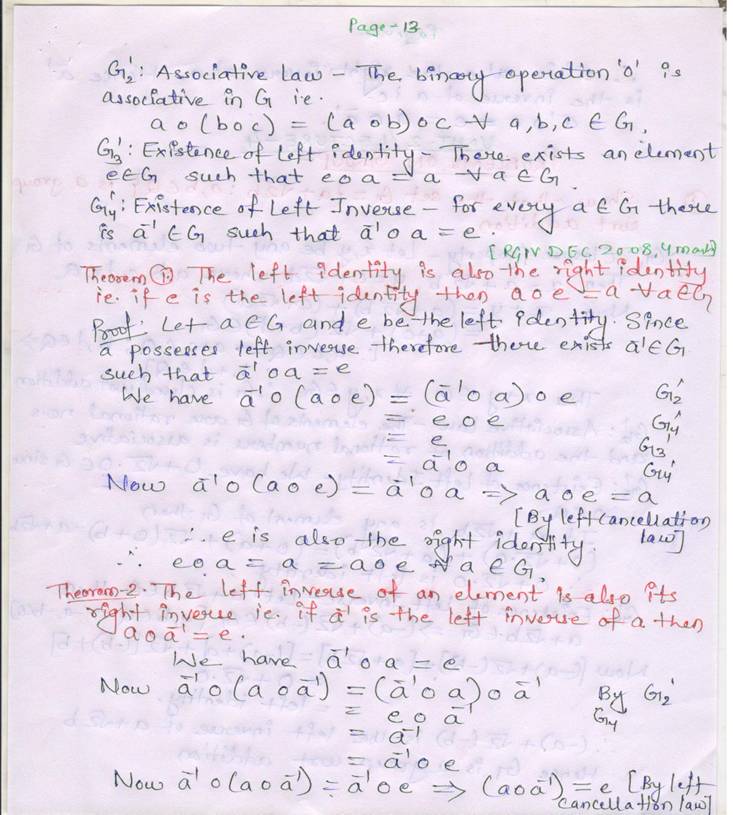 Page-13
G₂': Associative Law - The binary operation 'o' is
associative in G ie.
a o (b o c) = (a o b) o c ∀ a, b, c ∈ G.
G₃': Existence of left identity. There exists an element
e∈G such that e o a = a ∀ a ∈ G.
G₄': Existence of Left Inverse - for every a ∈ G there
is a⁻¹ ∈ G such that a⁻¹ o a = e.
[RGN DEC 2008, 4 mark]
Theorem ① The left identity is also the right identity
ie. if e is the left identity then a o e = a ∀ a∈G
Proof. Let a∈G and e be the left identity. Since
a possesses left inverse therefore there exists a⁻¹∈G
such that a⁻¹ o a = e
We have a⁻¹ o (a o e) = (a⁻¹ o a) o e G₂'
= e o e G₄'
= e G₃'
= a⁻¹ o a G₄'
Now a⁻¹ o (a o e) = a⁻¹ o a => a o e = a
[By left cancellation
law]
∴ e is also the right identity.
∴ e o a = a = a o e ∀ a ∈ G.
Theorem-2. The left inverse of an element is also its
right inverse ie. if a⁻¹ is the left inverse of a then
a o a⁻¹ = e.
We have a⁻¹ o a = e
Now a⁻¹ o (a o a⁻¹) = (a⁻¹ o a) o a⁻¹ By G₂'
= e o a⁻¹ G₄
= a⁻¹
= a⁻¹ o e
Now a⁻¹ o (a o a⁻¹) = a⁻¹ o e => (a o a⁻¹) = e [By left
cancellation law]